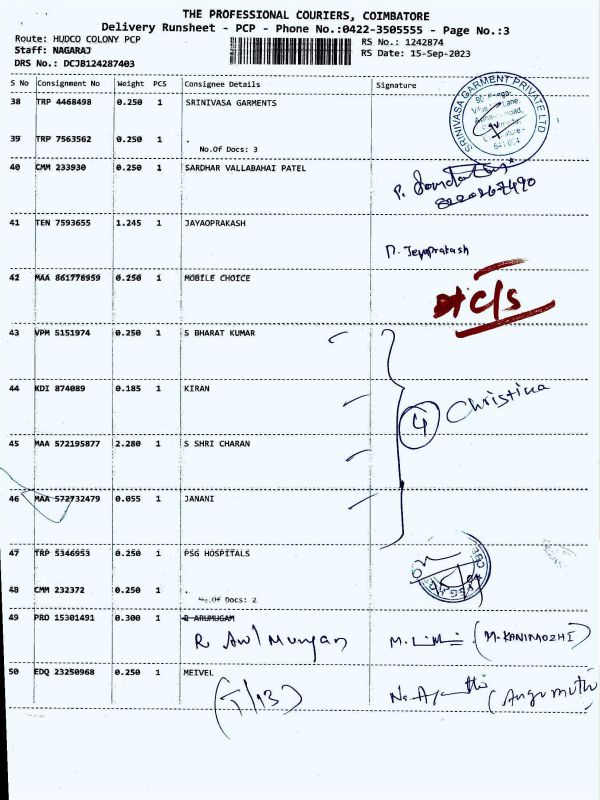 THE PROFESSIONAL COURIERS, COIMBATORE
Delivery Runsheet - PCP - Phone No.:0422-3505555 - Page No.:3
Route: HUDCO COLONY PCP
RS No.: 1242874
Staff: NAGARAJ
RS Date: 15-Sep-2023
DRS No.: DCJB124287403
S No Consignment No Weight PCS Consignee Details Signature
38 TRP 4468498 0.250 1 SRINIVASA GARMENTS
SRINIVASA GARMENT PRIVATE LTD
39 TRP 7563562 0.250 1 .
No.Of Docs: 3
40 CMM 233930 0.250 1 SARDHAR VALLABAHAI PATEL
P.
41 TEN 7593655 1.245 1 JAYAOPRAKASH
n. Jeyaprakash
42 MAA 861778959 0.250 1 MOBILE CHOICE
c/s
43 VPM 5151974 0.250 1 S BHARAT KUMAR
44 KDI 874089 0.185 1 KIRAN
4 Christina
45 MAA 572195877 2.280 1 S SHRI CHARAN
46 MAA 572732479 0.055 1 JANANI
47 TRP 5346953 0.250 1 PSG HOSPITALS
48 CMM 232372 0.250 1 .
No.Of Docs: 2
49 PRD 15301491 0.300 1 R ARUMUGAM
(M.KANIMOZHI)
50 EDQ 23250968 0.250 1 MEIVEL